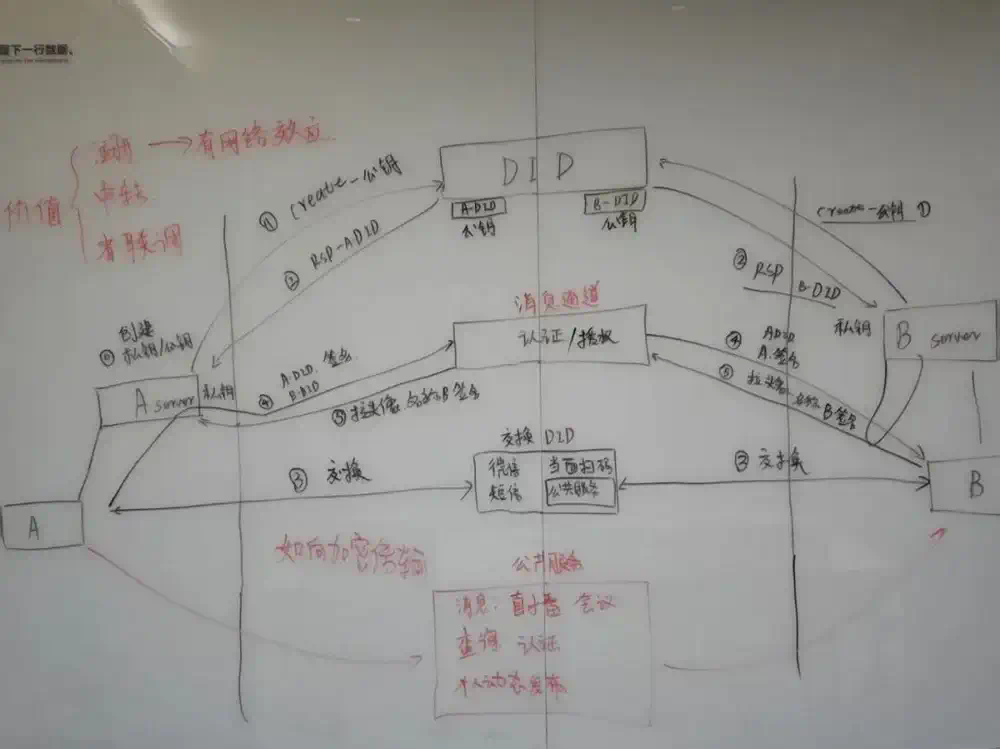 下一行数据、
价值
→ 有网络效应
省联调
DID
A-DID
公钥
B-DID
公钥
① Create-公钥
② RSP-ADID
Create-公钥 ①
② RSP
B-DID
消息通道
认证/授权
⓪ 创建
私钥/公钥
A server
私钥
④ A-DID 签名
B-DID
⑤ 拉头像、名称 B签名
④ ADID
A.签名
⑤ 拉头像、名称 B签名
私钥
B server
交换 DID
微信 当面扫码
短信 公共服务
③ 交换
③ 交换
A
B
如何加密传输
公共服务
消息: 会议
查询 认证
个人动态发布